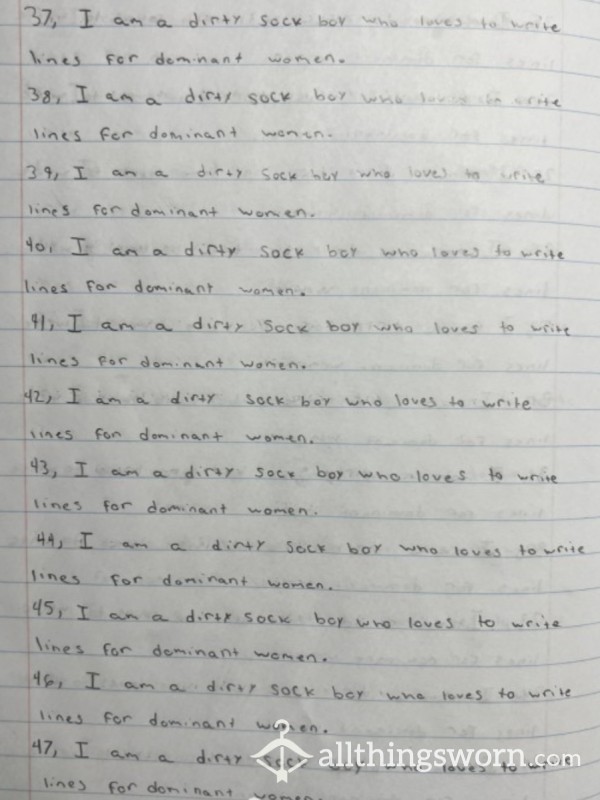 37, I am a dirty sock boy who loves to write
lines for dominant women.
38, I am a dirty sock boy who loves to write
lines for dominant women.
39, I am a dirty sock boy who loves to write
lines for dominant women.
40, I am a dirty sock boy who loves to write
lines for dominant women.
41, I am a dirty sock boy who loves to write
lines for dominant women.
42, I am a dirty sock boy who loves to write
lines for dominant women.
43, I am a dirty sock boy who loves to write
lines for dominant women.
44, I am a dirty sock boy who loves to write
lines for dominant women.
45, I am a dirty sock boy who loves to write
lines for dominant women.
46, I am a dirty sock boy who loves to write
lines for dominant women.
47, I am a dirty sock boy who loves to write
allthingsworn.com
lines for dominant women